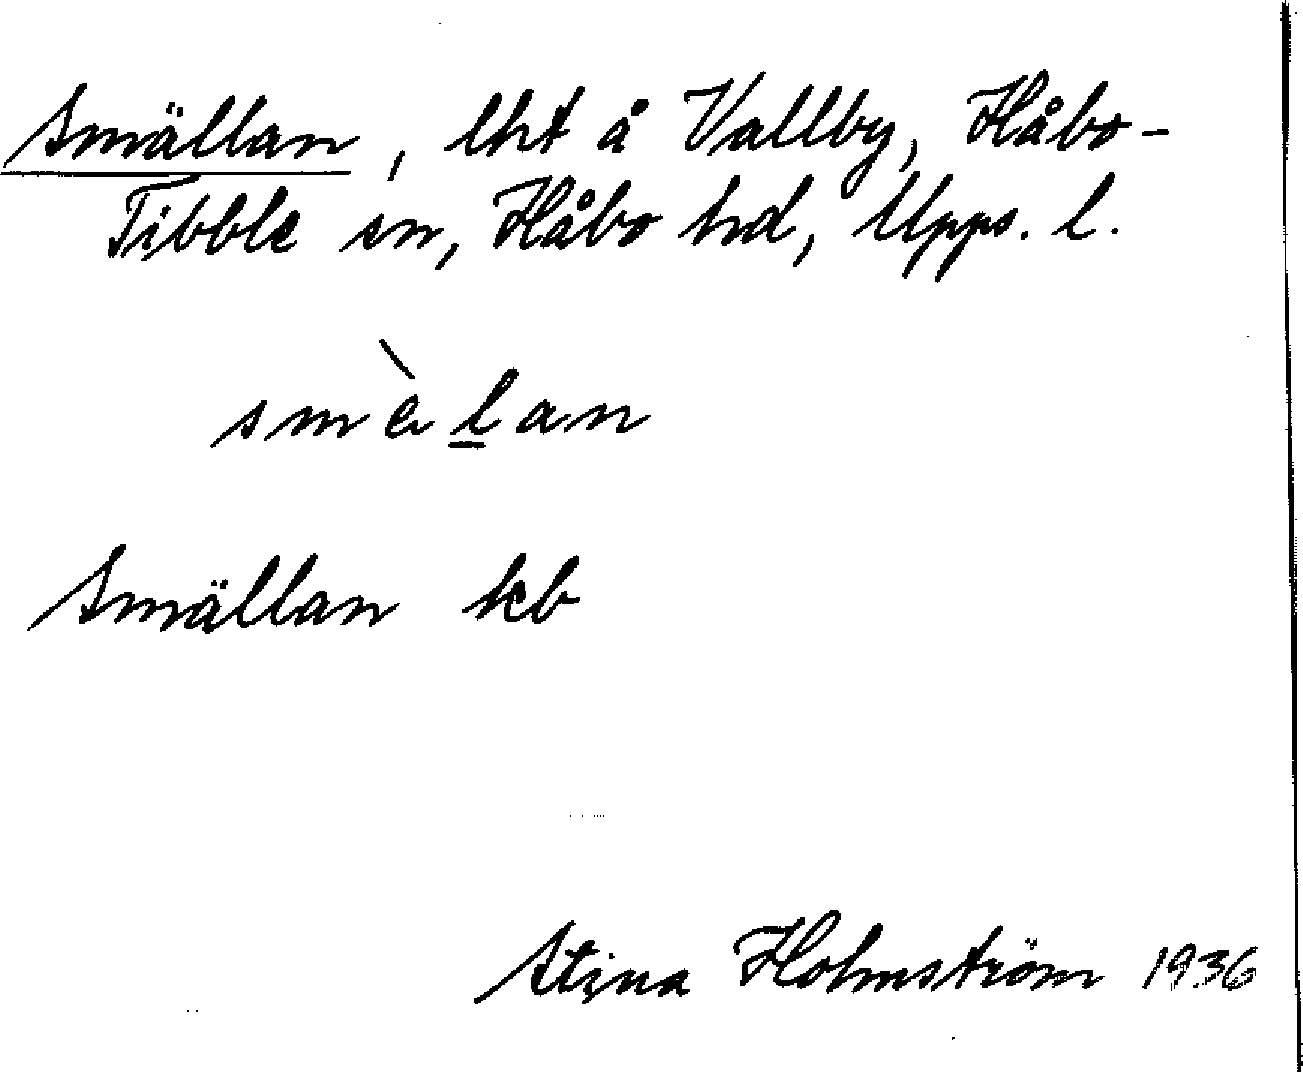 Smällan, lht å Vallby, Håbo-
Tibble sn, Håbo hd, Upps. l.
smèlan
Smällan kb
Stina Holmström 1936